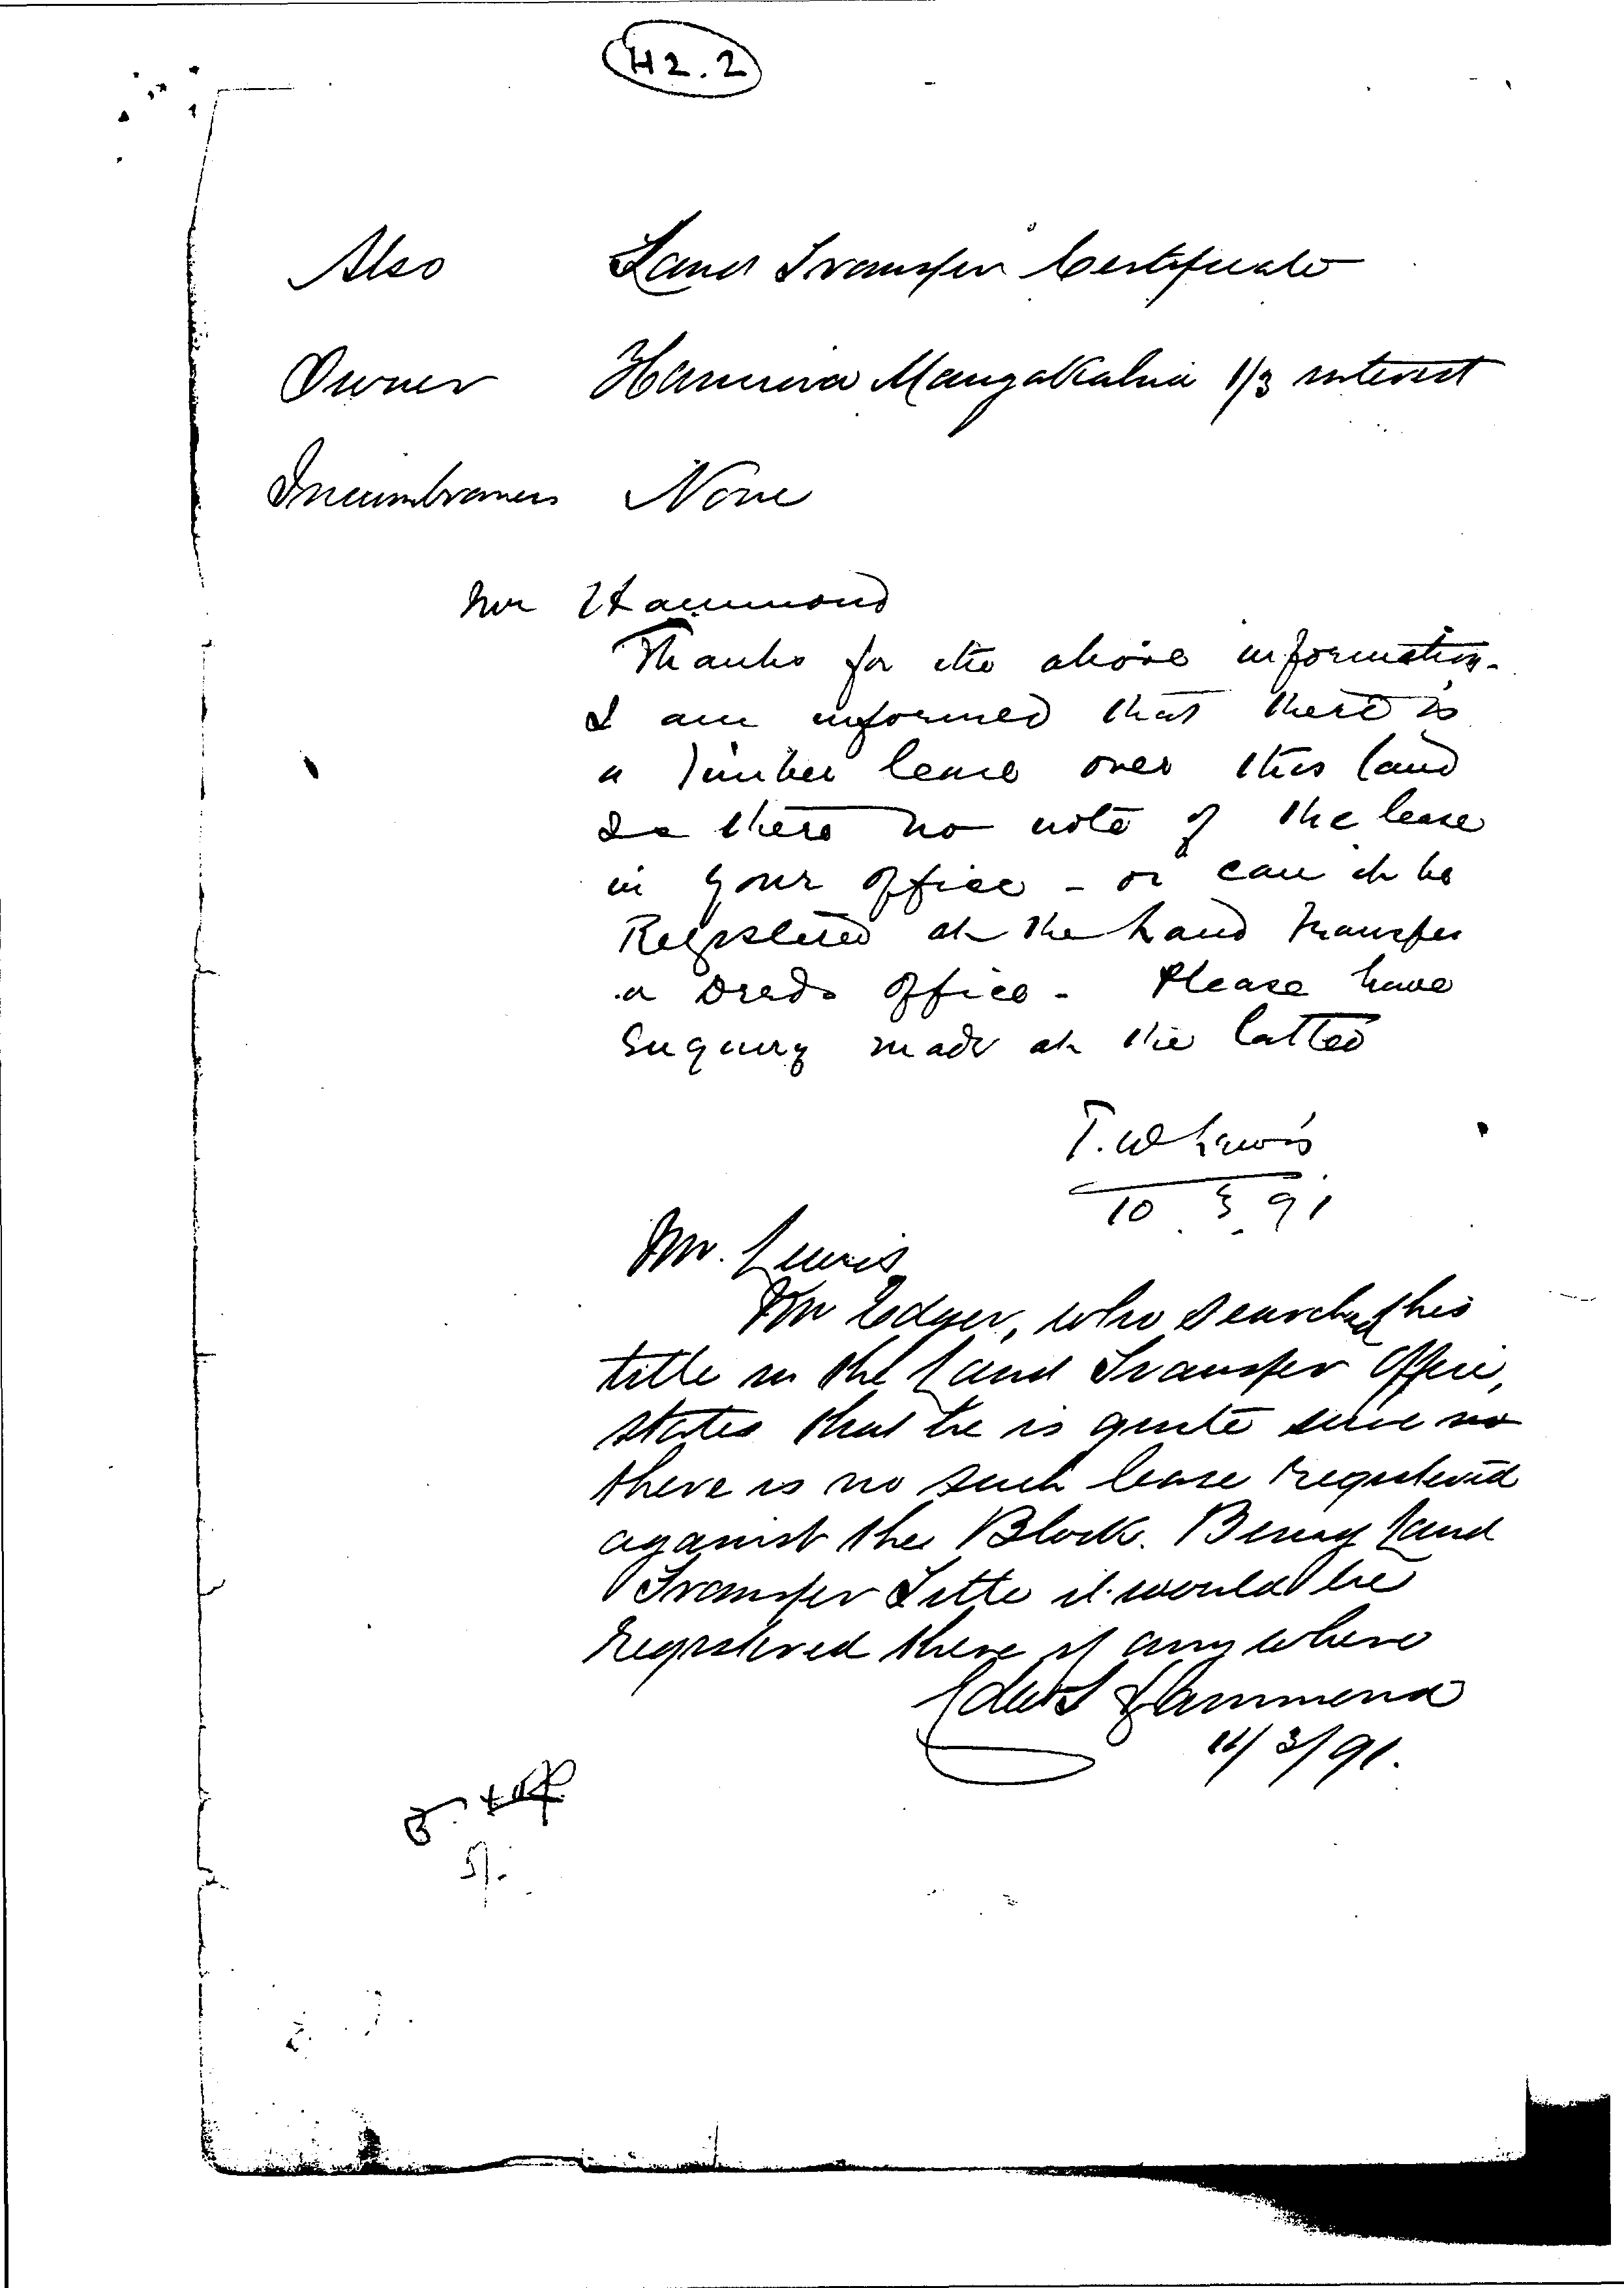 H2.2
Also Land Transfer Certificate
Owner Hamiora Mangakahia 1/3 interest
Incumbrances None
Mr Hammond
Thanks for the above information.
I am informed that there is
a Timber lease over this land
Is there no note of the lease
in your office - or can it be
Registered at the Land Transfer
or Deeds office - Please have
Enquiry made at the latter
T. W Lewis
10 . 3 . 91
Mr. Lewis
Mr Edger, who searched this
title in the Land Transfer Office,
states that he is quite sure no
there is no such lease registered
against the Block. Being Land
Transfer Title it would be
registered there if any where
Edw Hammond
11/3/91.